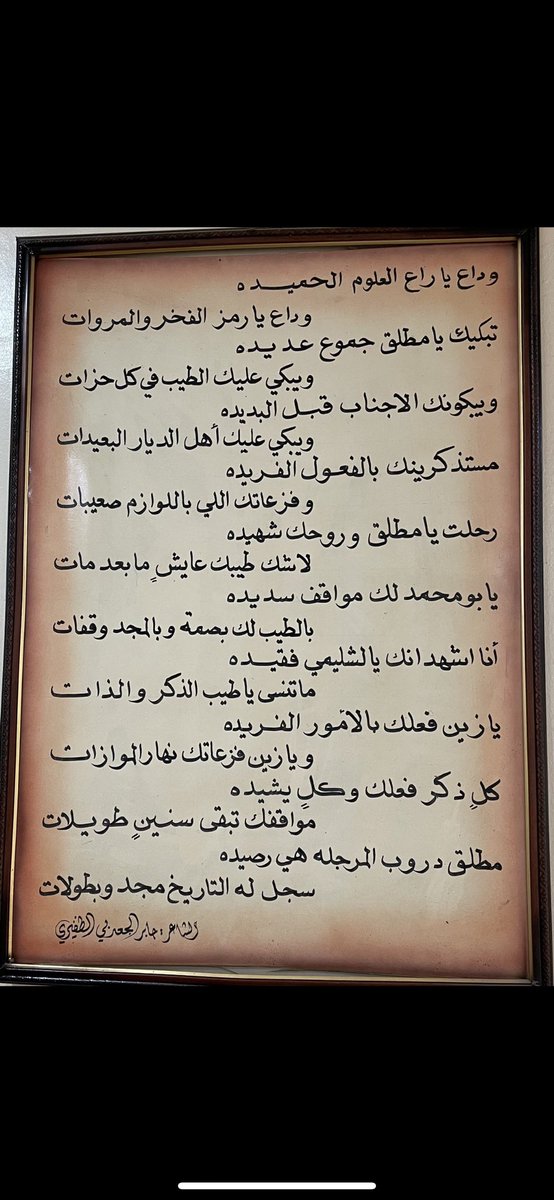 وداع يا راع العلوم الحميده
وداع يا رمز الفخر والمروات
تبكيك يا مطلق جموع عديده
ويبكي عليك الطيب في كل حزات
ويبكونك الاجناب قبل البديده
ويبكي عليك أهل الديار البعيدات
مستذكرينك بالفعول الفريده
وفزعاتك اللي باللوازم صعيبات
رحلت يا مطلق وروحك شهيده
لاشك طيبك عايشٍ ما بعد مات
يابو محمد لك مواقف سديده
بالطيب لك بصمة وبالمجد وقفات
أنا اشهد انك يالشليمي فقيده
ماتنسى ياطيب الذكر والذات
يازين فعلك بالأمور الفريده
ويازين فزعاتك نهار الموازات
كلٍ ذكر فعلك وكلٍ يشيده
مواقفك تبقى سنينٍ طويلات
مطلق دروب المرجله هي رصيده
سجل له التاريخ مجد وبطولات
الشاعر: جابر الجعدبي الظفيري